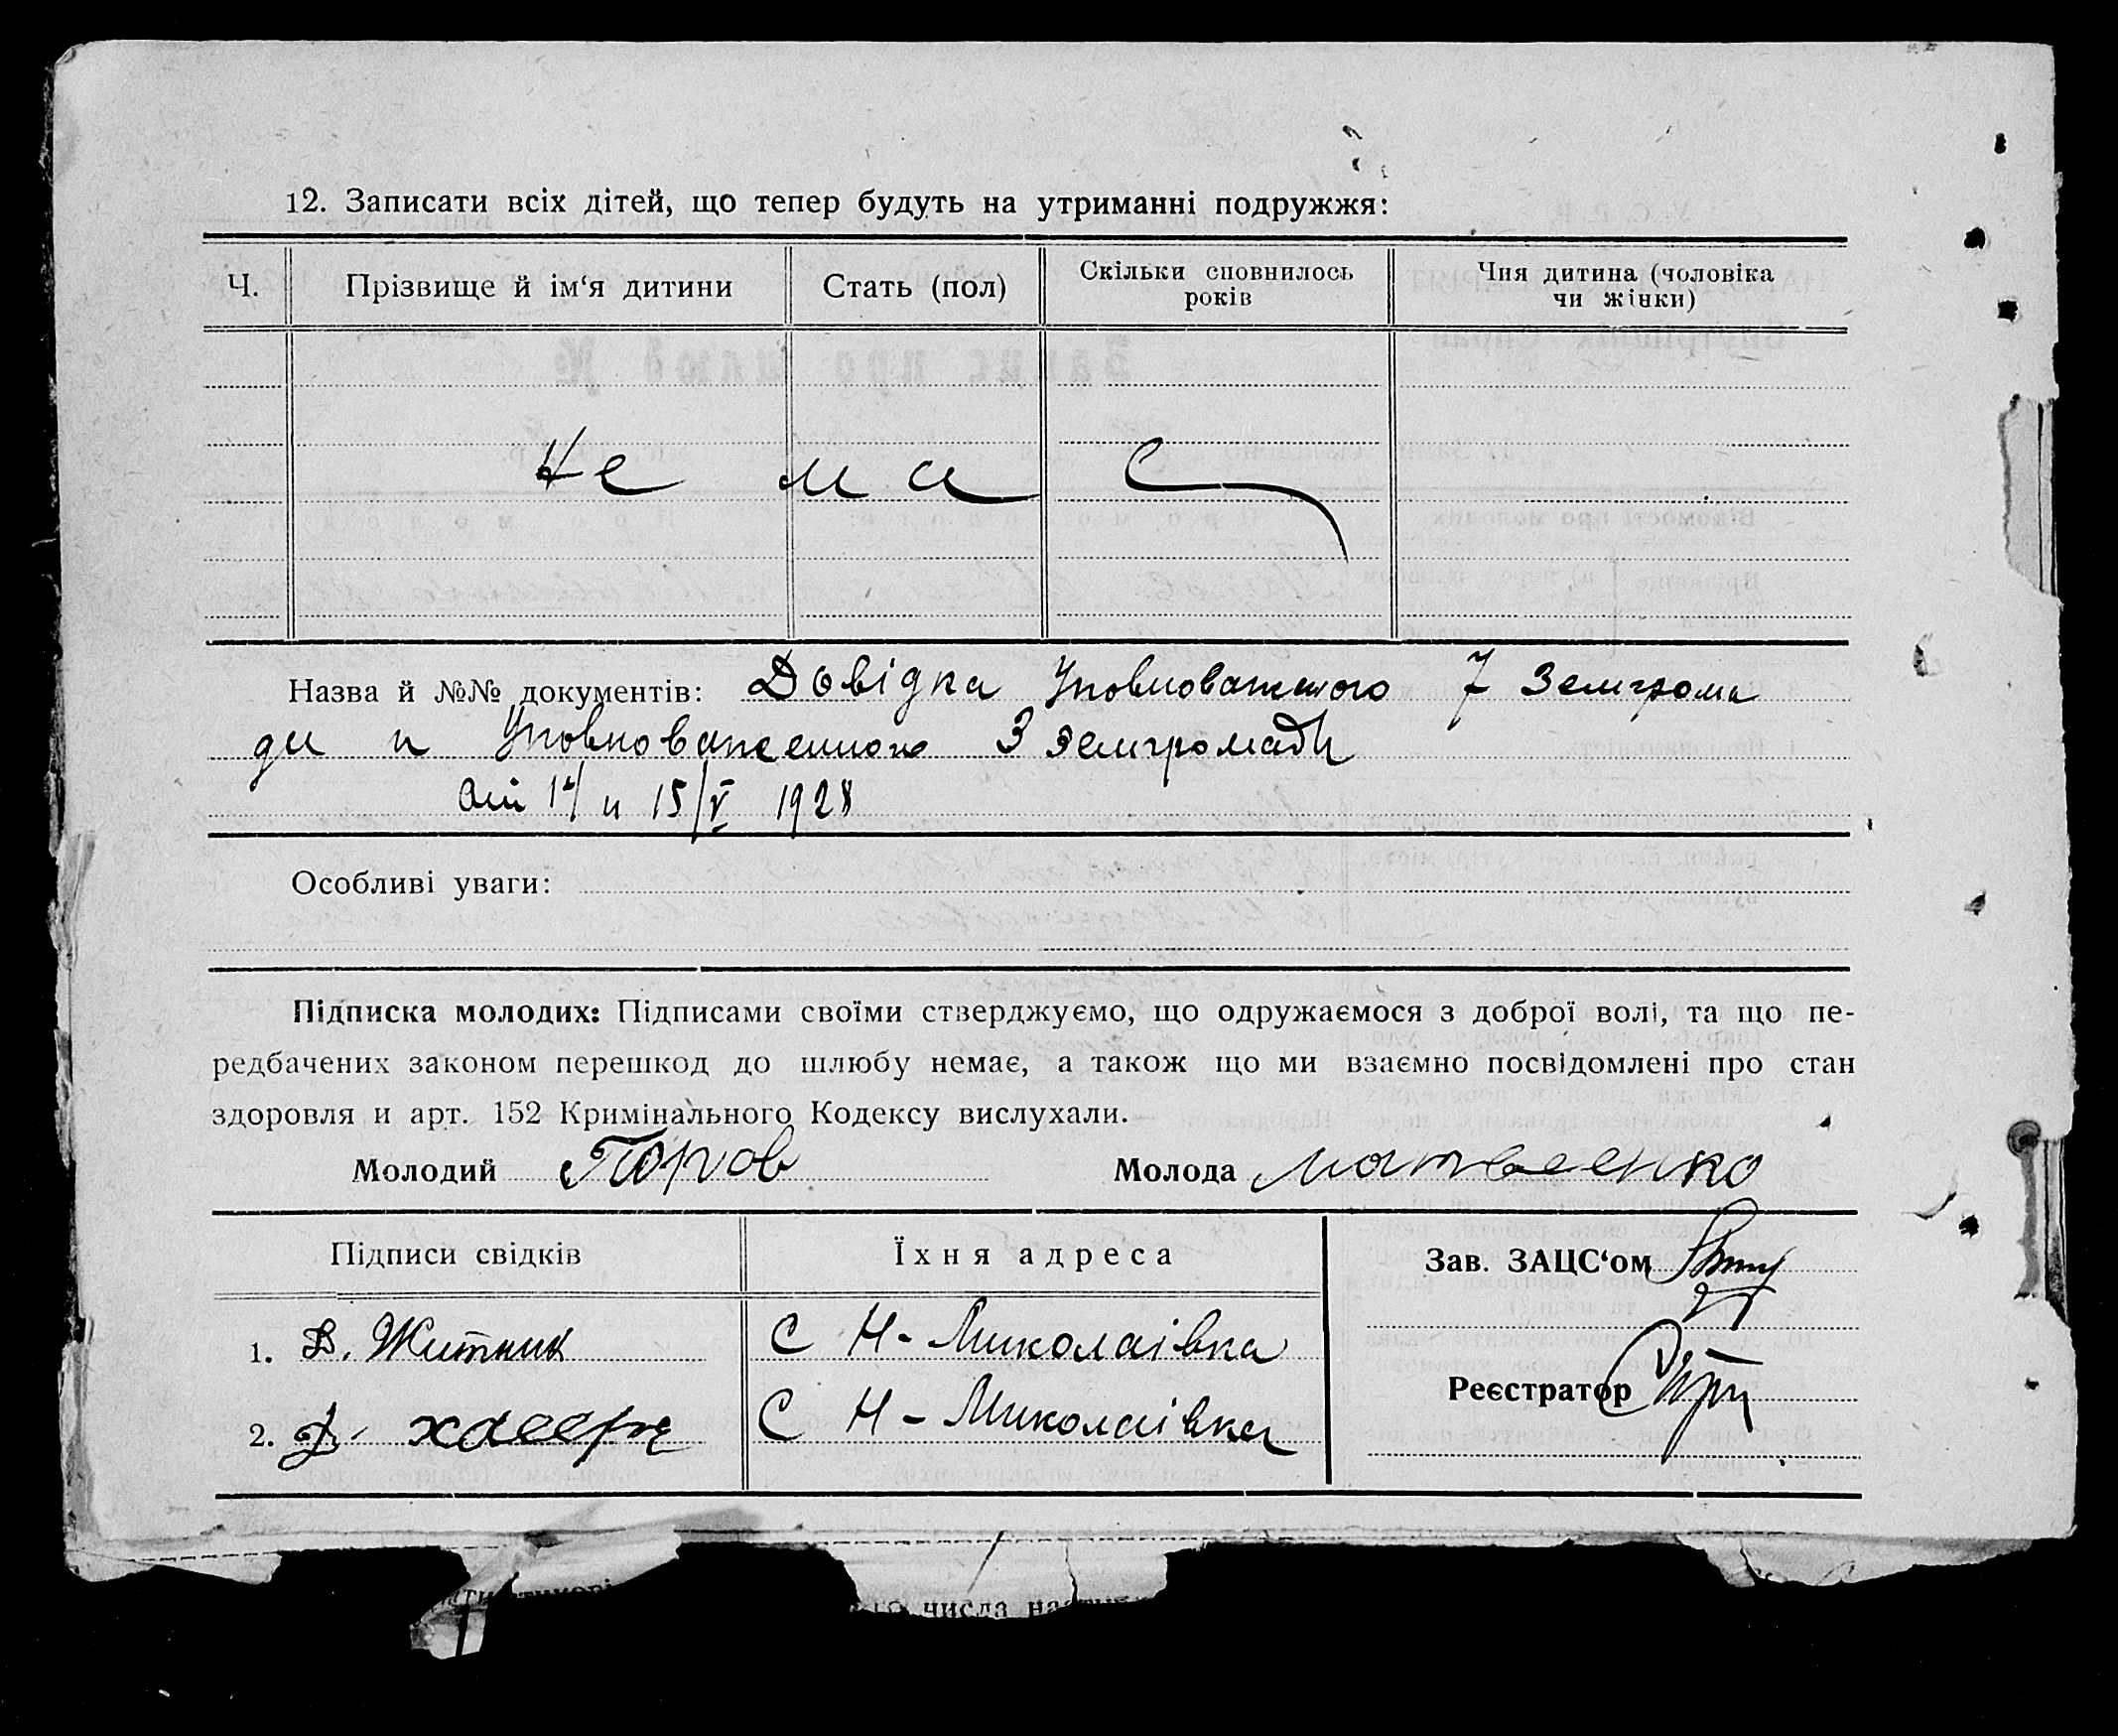 12. Записати всіх дітей, що тепер будуть на утриманні подружжя:
Ч. Прізвище й ім‘я дитини Стать (пол) Скільки сповнилось років Чия дитина (чоловіка чи жінки)
Не ма є
Назва й №№ документів: Довідка Уповноваженого 7 Земгрома
ди и Уповноваженного 3 земгромади
від 14/ и 15/V 1928
Особливі уваги:
Підписка молодих: Підписами своїми стверджуємо, що одружаємося з доброї волі, та що пе-
редбачених законом перешкод до шлюбу немає, а також що ми взаємно посвідомлені про стан
здоровля и арт. 152 Кримінального Кодексу вислухали.
Молодий Молода Матвеенко
Підписи свідків Їхня адреса Зав. ЗАЦС‘ом
1. Житник С Н-Миколаівка
Реєстратор
2. С Н-Миколаівка
числа